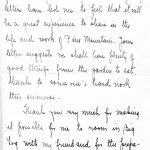 letters have led me to feel that it will
be a great experience to share in the
life and work of Pine Mountain. Your
letter suggests we shall have plenty of
good things from the garden to eat,
thanks to some one's hard work
this summer.
Thank you very much for making
it possible for me to room in Big
Log with my friend and for the